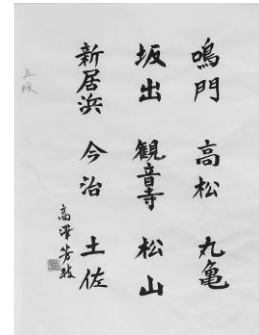 鳴門 高松 丸亀
坂出 観音寺 松山
新居浜 今治 土佐
高澤芳枝